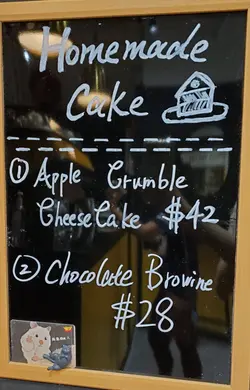 Homemade
Cake
① Apple Crumble
CheeseCake $42
② Chocolate Brovine
$28